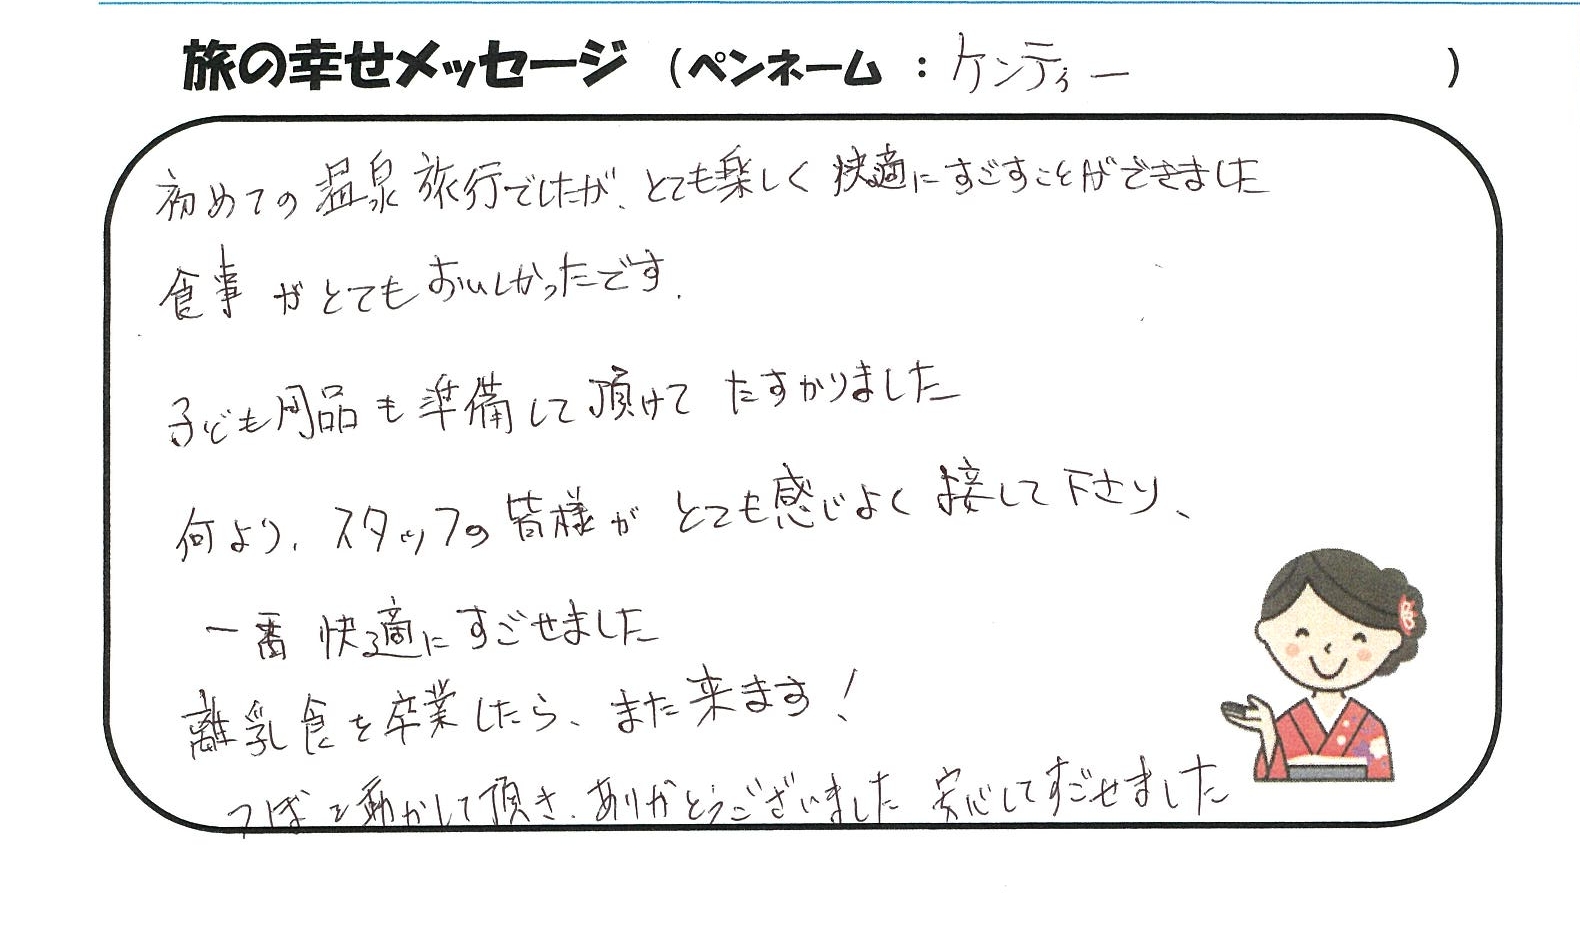 旅の幸せメッセージ (ペンネーム : ケンティー )
初めての温泉旅行でしたが、とても楽しく快適にすごすことができました
食事がとてもおいしかったです.
子ども用品も準備して頂けてたすかりました
何より、スタッフの皆様がとても感じよく接して下さり、
一番快適にすごせました
離乳食を卒業したら、また来ます!
つぼを動かして頂き、ありがとうございました 安心してすごせました